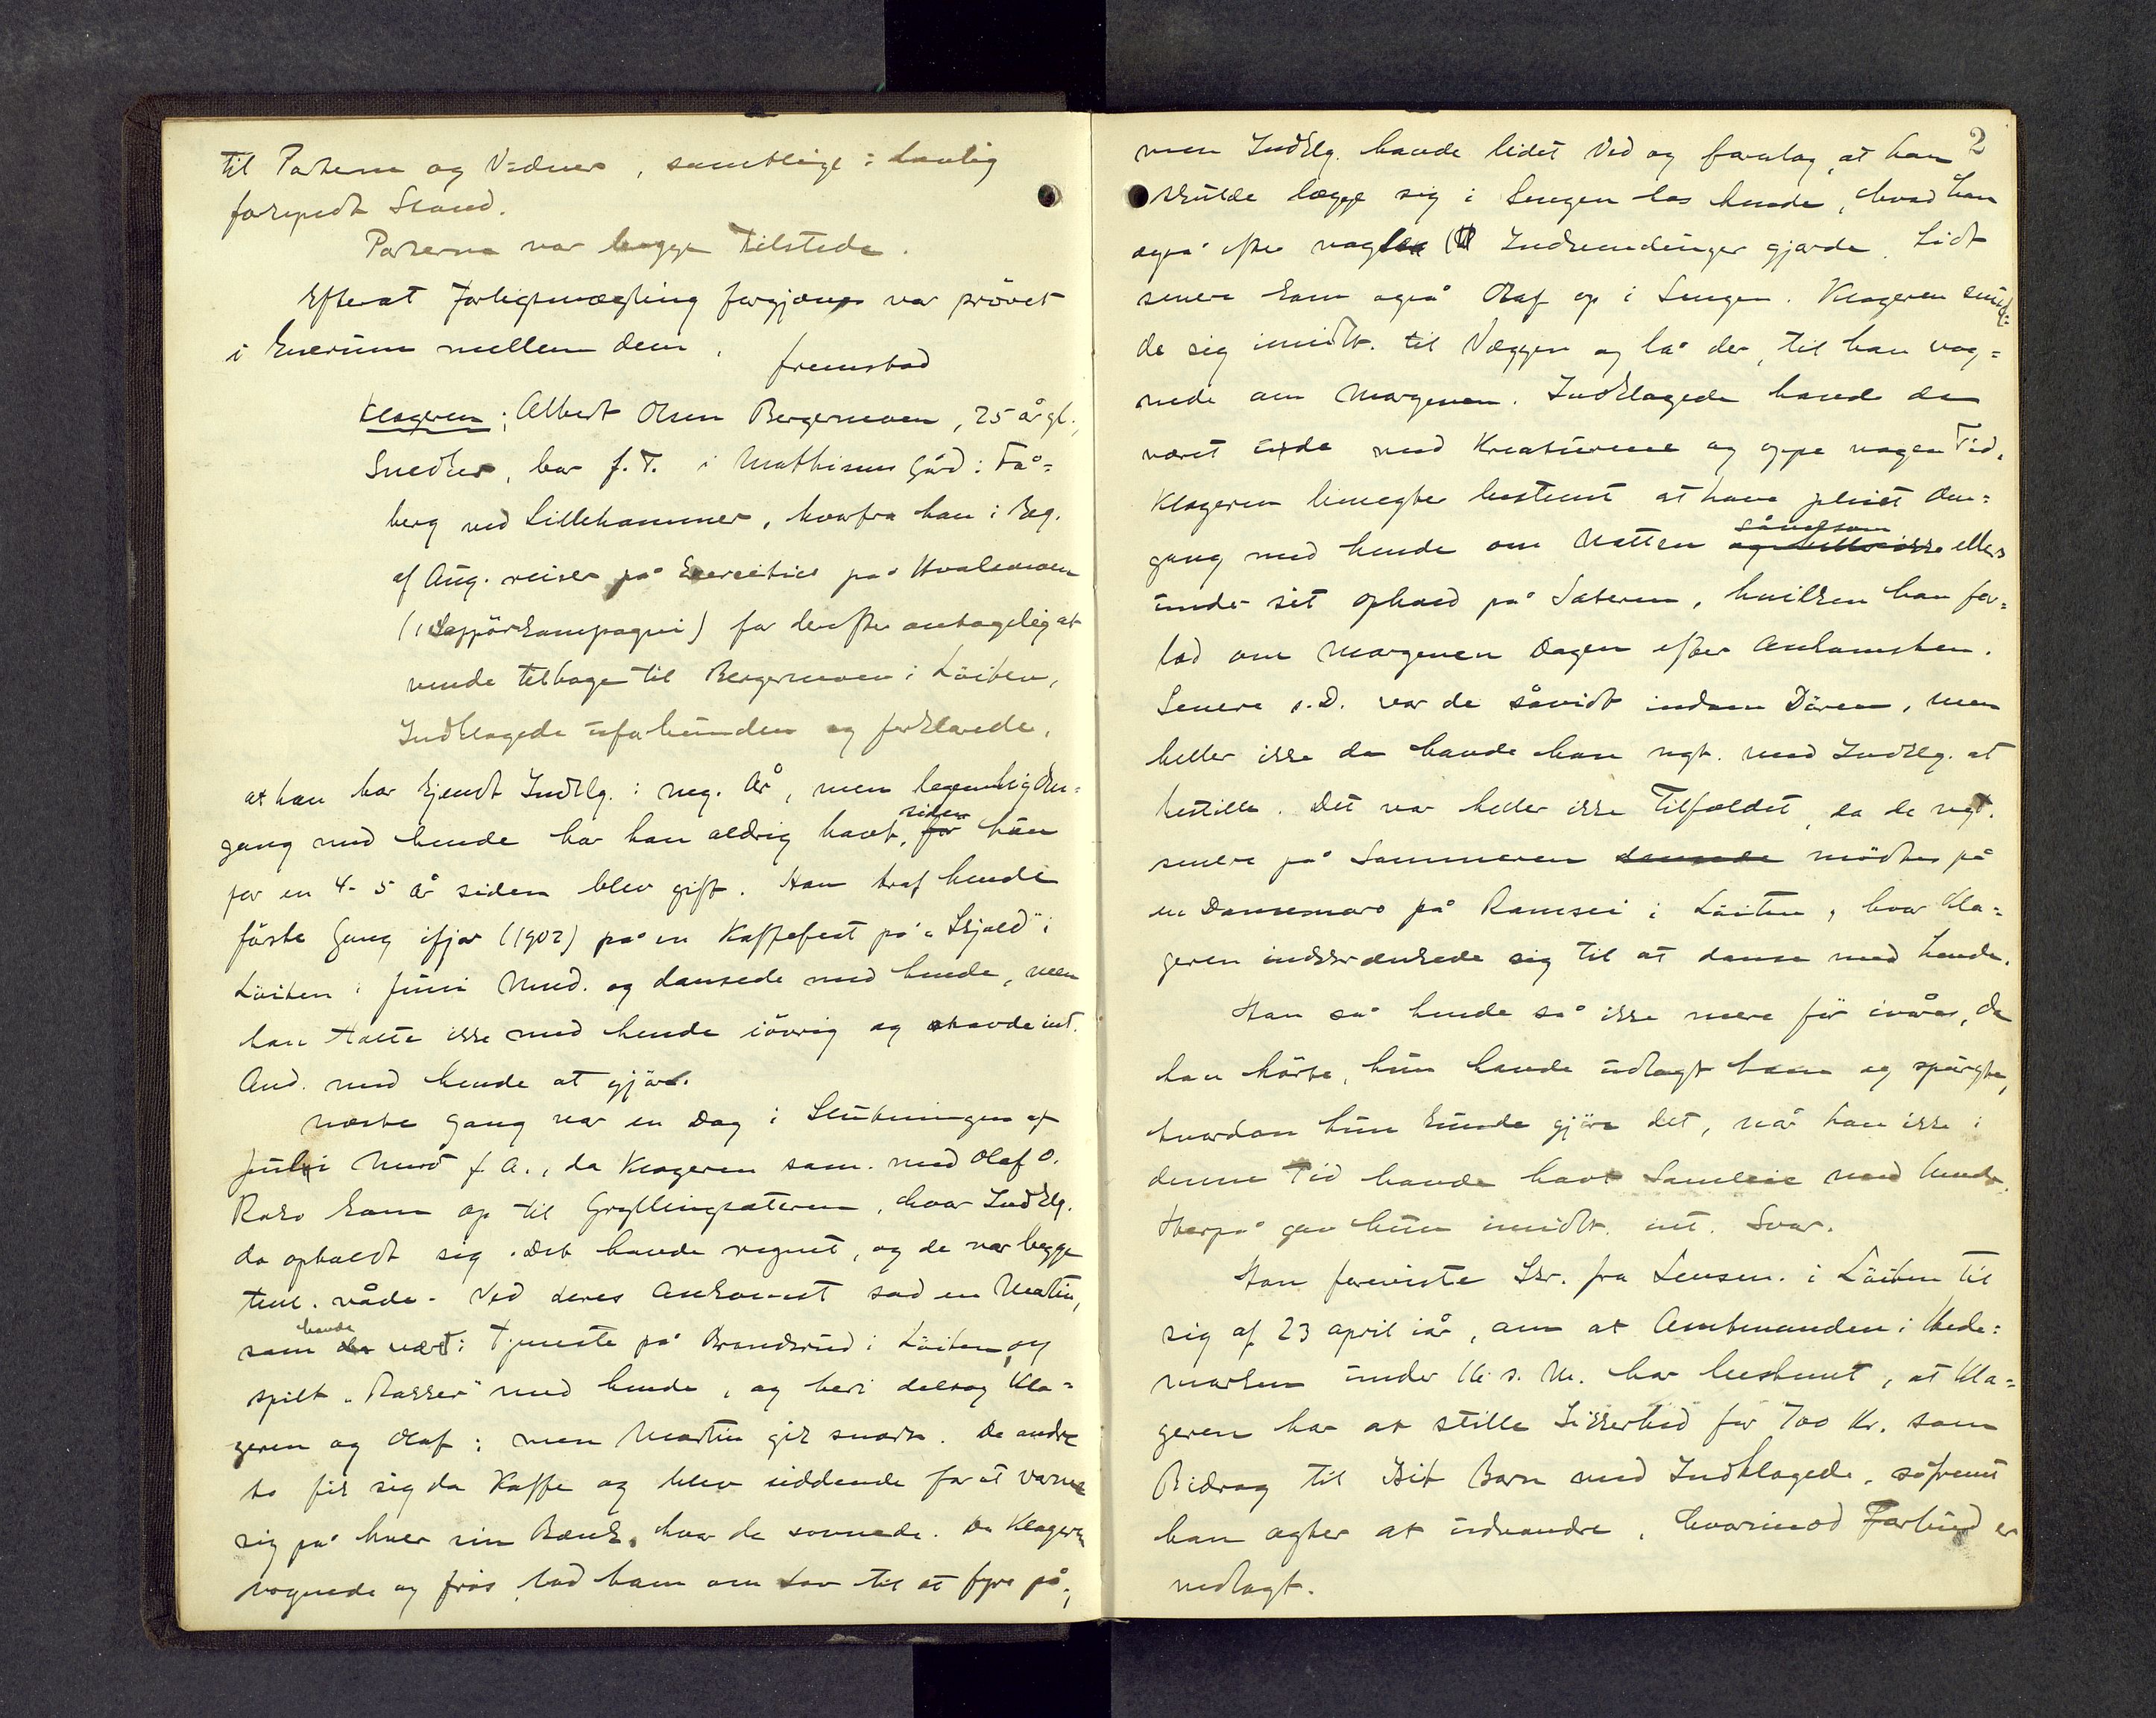 til Parterne og Vidner, samtlige i lovlig
forkyndt Stand.
Parterne var begge tilstede.
Efterat Forligsmægling forgjæves var prövet
i Enerum mellem dem,
fremstod
Klageren: Albert Olsen Bergersmoen, 25 år gl.,
Snedker, bor f. T. i Mathisens Gård i Få=
berg ved Lillehammer, hvorfra han i Beg.
af Aug. reiser på Exercitie på Hvalsmoen
(1 Sappörkompagni) for derefter antagelig at
vende tilbage til Bergersmoen i Löiten,
Indklagede uforbunden og forklarede,
at han har kjendt Indklg. i neg. År, men legemlig Om=
gang med hende har han aldrig havt, siden hun
for en 4-5 År siden blev gift. Han traf hende
förste Gang ifjor (1902) på en Kaffefest på "Skjold" i
Löiten i Juni Mnd. og dansede med hende, men
han holdt ikke med hende iövrig og havde int.
And. med hende at gjöre.
Næste Gang var en Dag i Slutningen af
Juli Mnd f. A., da Klageren sam. med Olaf O.
kom op til Gryllingsæteren, hvor Indklg.
da opholdt sig. Det havde regnet, og de var begge
teml. våde. Ved deres Ankomst sad en Martin,
som havde vært i Tjeneste på Brandsrud i Löiten, og
spilt "Rasser" med hende, og heri deltog Kla=
geren og Olaf; men Martin gik snart. De andre
to fik sig da Kaffe og blev siddende for at varme
sig på hver sin Bænk, hvor de sovnede. Da Klageren
vognede og frös, bad ham om Lov til at fyre på,
2
men Indklg. havde lidet Ved og foreslog, at han
skulde lægge sig i Sengen hos hende, hvad han
også efter nogle Indvendinger gjorde. Lidt
senere kom også Olaf op i Sengen. Klageren snud=
de sig imidlt. til Væggen og lå der, til han vog=
nede om Morgenen. Indklagede havde da
været ude med Kreaturene og oppe nogen Tid.
Klageren benegter bestemt at have pleiet Om=
gang med hende om Natten såvelsom ellers
under sit Ophold på Sæteren, hvilken han for=
lod om Morgenen Dagen efter Ankomsten.
Senere s. D. var de såvidt indom Dören, men
heller ikke da havde han ngt. med Indklg. at
bestille. Det var heller ikke Tilfældet, da de ngt.
senere på Sommeren mödtes på
en Dansemoro på Ramsei i Löiten, hvor Kla=
geren indskrænkede sig til at danse med hende.
Han så hende så ikke mere för ivåres, da
han hörte, hun havde udlagt ham og spurgte,
hvordan hun kunde gjöre det, når han ikke i
denne Tid havde havt Samleie med hende.
Herpå gav hun imidlt. int. Svar.
Han foreviste Skr. fra Lensm. i Löiten til
sig af 23 april iår, om at Amtmanden i Hede=
marken under 16 s. M. har bestemt, at Kla=
geren har at stille Sikkerhed for 700 Kr. som
Bidrag til sit Barn med Indklagede, såfremt
han agter at udvandre, hvorimod Forbud er
nedlagt.